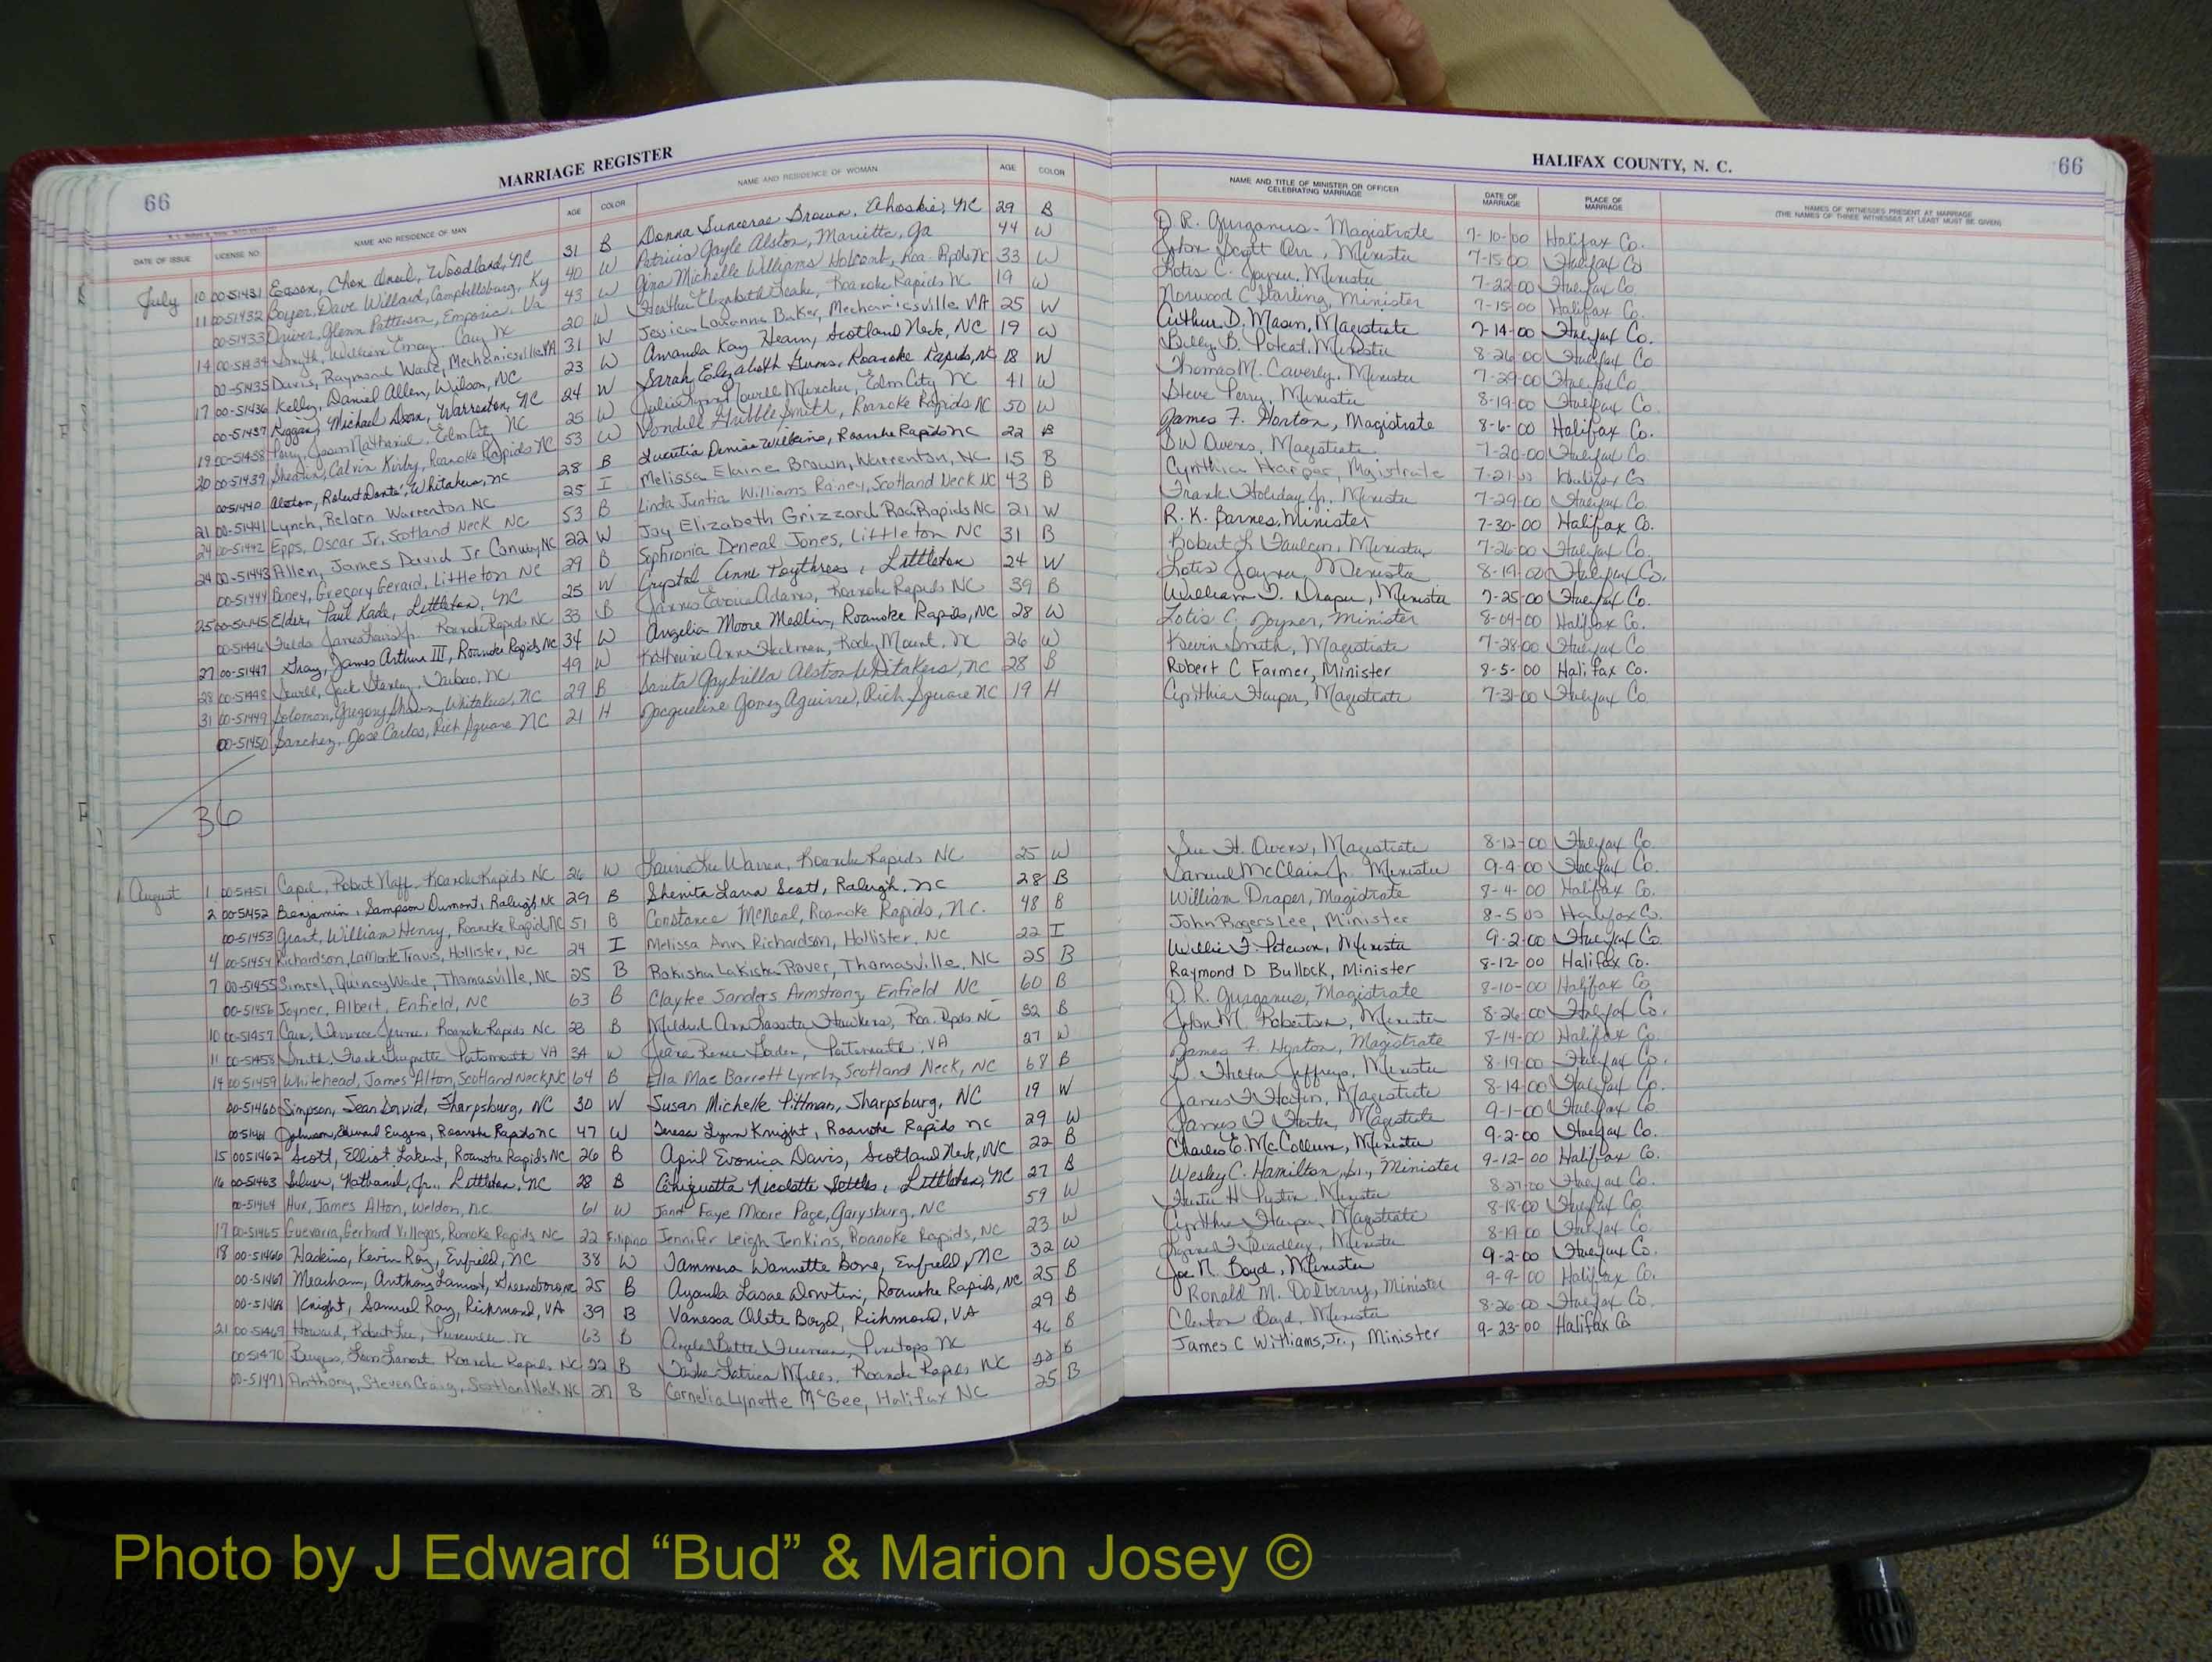 66 MARRIAGE REGISTER HALIFAX COUNTY, N. C. 66
DATE OF ISSUE LICENSE NO. NAME AND RESIDENCE OF MAN AGE COLOR NAME AND RESIDENCE OF WOMAN AGE COLOR NAME AND TITLE OF MINISTER OR OFFICER CELEBRATING MARRIAGE DATE OF MARRIAGE PLACE OF MARRIAGE NAMES OF WITNESSES PRESENT AT MARRIAGE (THE NAMES OF THREE WITNESSES AT LEAST MUST BE GIVEN)
July 10 00-51431 Woodland, NC 31 B Donna Brown, Ahoskie, NC 29 B D. R. Gurganus - Magistrate 7-10-00 Halifax Co.
11 00-51432 Boyer, Dave Willard, Campbellsburg, Ky 40 W Patricia Gayle Alston, Marietta, Ga 44 W John Scott Orr, Minister 7-15-00 Halifax Co
00-51433 Driver, Glenn Patterson, Emporia, Va 43 W Gina Michelle Williams Holcomb, Roa. Rpds NC 33 W Lotis C. Joyner, Minister 7-22-00 Halifax Co
14 00-51434 Smyth, William Cary NC 20 W Heather Elizabeth Roanoke Rapids NC 19 W Norwood C Starling, Minister 7-15-00 Halifax Co.
00-51435 Davis, Raymond Wade, Mechanicsville, VA 31 W Jessica Baker, Mechanicsville VA 25 W Arthur D. Mason, Magistrate 7-14-00 Halifax Co.
17 00-51436 Kelly, Daniel Allen, Wilson, NC 23 W Amanda Kay Hearn, Scotland Neck, NC 19 W Billy B. Poteat, Minister 8-26-00 Halifax Co
00-51437 Riggan, Michael Warrenton, NC 24 W Sarah Elizabeth Roanoke Rapids, NC 18 W Thomas M. Caverly, Minister 7-29-00 Halifax Co
19 00-51438 Perry, Jason Nathaniel, Elm City NC 25 W Julia Elm City NC 41 W Steve Perry, Minister 8-19-00 Halifax Co
20 00-51439 Shearin, Calvin Kirby, Roanoke Rapids NC 53 W Vondell Gribble Smith, Roanoke Rapids NC 50 W James F. Horton, Magistrate 8-6-00 Halifax Co.
00-51440 Alston, Robert Donte', Whitakers, NC 28 B Lucretia Denise Wilkins, Roanoke Rapids NC 22 B SW Owens, Magistrate 7-20-00 Halifax Co.
21 00-51441 Lynch, Relorn Warrenton NC 25 I Melissa Elaine Brown, Warrenton, NC 15 B Cynthia Harper, Magistrate 7-21-00 Halifax Co
24 00-51442 Epps, Oscar Jr, Scotland Neck NC 53 B Linda Juntia Williams Rainey, Scotland Neck NC 43 B Frank Holiday Jr, Minister 7-29-00 Halifax Co.
24 00-51443 Allen, James David Jr Conway, NC 22 W Joy Elizabeth Grizzard Roa. Rapids NC 21 W R. K. Barnes, Minister 7-30-00 Halifax Co.
00-51444 Boney, Gregory Gerard, Littleton NC 29 B Sophronia Deneal Jones, Littleton NC 31 B Robert L. Faulcon, Minister 7-26-00 Halifax Co.
25 00-51445 Elder, Paul Kade, Littleton, NC 25 W Crystal Anne Poythress, Littleton 24 W Lotis Joyner, Minister 8-19-00 Halifax Co.
00-51446 Fields, James Jr. Roanoke Rapids NC 33 B Adams, Roanoke Rapids NC 39 B William D. Draper, Minister 7-25-00 Halifax Co.
27 00-51447 Gray, James Arthur III, Roanoke Rapids, NC 34 W Angelia Moore Medlin, Roanoke Rapids, NC 28 W Lotis C. Joyner, Minister 8-04-00 Halifax Co.
28 00-51448 Sewell, Jack Stanley, Tarboro, NC 49 W Katherine Anne Hickman, Rocky Mount, NC 26 W Kevin Smith, Magistrate 7-28-00 Halifax Co.
31 00-51449 Solomon, Gregory Shawn, Whitakers, NC 29 B Sarita Gaybrilla Alston, Whitakers, NC 28 B Robert C Farmer, Minister 8-5-00 Halifax Co.
00-51450 Sanchez, Jose Carlos, Rich Square NC 21 H Jacqueline Gomez Aguirre, Rich Square NC 19 H Cynthia Harper, Magistrate 7-31-00 Halifax Co
36
August 1 00-51451 Capel, Robert Naff, Roanoke Rapids NC 26 W Laurie Lee Warren, Roanoke Rapids NC 25 W Sue H. Owens, Magistrate 8-12-00 Halifax Co
2 00-51452 Benjamin, Sampson Dumont, Raleigh NC 29 B Shenita Lana Scott, Raleigh, NC 28 B Samuel McClain Jr. Minister 9-4-00 Halifax Co.
00-51453 Grant, William Henry, Roanoke Rapids NC 51 B Constance McNeal, Roanoke Rapids, N.C. 48 B William Draper, Magistrate 8-4-00 Halifax Co.
4 00-51454 Richardson, LaMonte Travis, Hollister, NC 24 I Melissa Ann Richardson, Hollister, NC 22 I John Rogers Lee, Minister 8-5-00 Halifax Co.
7 00-51455 Simrel, Quincy Wade, Thomasville, NC 25 B Rakisha LaKisha Rover, Thomasville, NC 25 B Willie F. Peterson, Minister 9-2-00 Halifax Co.
00-51456 Joyner, Albert, Enfield, NC 63 B Claytee Sanders Armstrong, Enfield NC 60 B Raymond D Bullock, Minister 8-12-00 Halifax Co.
10 00-51457 Roanoke Rapids NC 23 B Mildred Ann Lassiter Hawkins, Roa. Rpds. NC 32 B D. R. Gurganus, Magistrate 8-10-00 Halifax Co
11 00-51458 Smith, Portsmouth VA 34 W Renee Portsmouth, VA 27 W John M. Robertson, Minister 8-26-00 Halifax Co.
14 00-51459 Whitehead, James Alton, Scotland Neck NC 64 B Ella Mae Barrett Lynch, Scotland Neck, NC 68 B James F. Horton, Magistrate 8-14-00 Halifax Co
00-51460 Simpson, Sean David, Sharpsburg, NC 30 W Susan Michelle Pittman, Sharpsburg, NC 19 W Jeffreys, Minister 8-19-00 Halifax Co.
00-51461 Johnson, Edward Eugene, Roanoke Rapids NC 47 W Teresa Lynn Knight, Roanoke Rapids NC 29 W James F Horton, Magistrate 8-14-00 Halifax Co.
15 0051462 Scott, Elliot Lakent, Roanoke Rapids NC 26 B April Evonica Davis, Scotland Neck, NC 22 B James F Horton, Magistrate 9-1-00 Halifax Co
16 00-51463 Silver, Nathaniel, Jr., Littleton, NC 28 B Nicolette Settles, Littleton, NC 27 B Charles E. McCollum, Minister 9-2-00 Halifax Co.
00-51464 Hux, James Alton, Weldon, N.C. 61 W Janet Faye Moore Page, Garysburg, NC 59 W Wesley C. Hamilton, Sr., Minister 9-12-00 Halifax Co.
17 00-51465 Guevarra, Gerhard Villegas, Roanoke Rapids, NC 22 Filipino Jennifer Leigh Jenkins, Roanoke Rapids, NC 23 W Minister 8-27-00 Halifax Co.
18 00-51466 Hawkins, Kevin Ray, Enfield, NC 38 W Tammera Wannette Bone, Enfield, NC 32 W Cynthia Harper, Magistrate 8-18-00 Halifax Co
00-51467 Meacham, Anthony Lamont, Greensboro, NC 25 B Roanoke Rapids, NC 25 B Bradley, Minister 8-19-00 Halifax Co
00-51468 Knight, Samuel Ray, Richmond, VA 39 B Vanessa Olete Boyd, Richmond, VA 29 B Joe N. Boyd, Minister 9-2-00 Halifax Co.
21 00-51469 Howard, Robert Lee, NC 63 B Angela Battle Freeman, Pinetops NC 46 B Ronald M. Dolberry, Minister 9-9-00 Halifax Co.
00-51470 Roanoke Rapids, NC 22 B Latrica Mills, Roanoke Rapids NC 22 B Clenton Boyd, Minister 8-26-00 Halifax Co.
00-51471 Anthony, Steven Craig, Scotland Neck NC 27 B Cornelia Lynette McGee, Halifax NC 25 B James C Williams, Jr., Minister 9-23-00 Halifax Co
Photo by J Edward “Bud” & Marion Josey ©